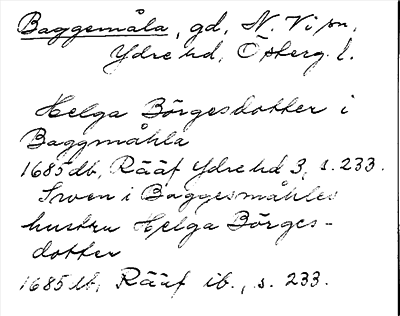 Baggemåla, gd, N. Vi sn,
Ydre hd, Österg. l.
Helga Börgesdotter i
Baggmåhla
1685 db, Rääf Ydre hd 3, s. 233.
Swen i Baggesmåhles
hustru Helga Börges-
dotter
1685 db, Rääf ib., s. 233.